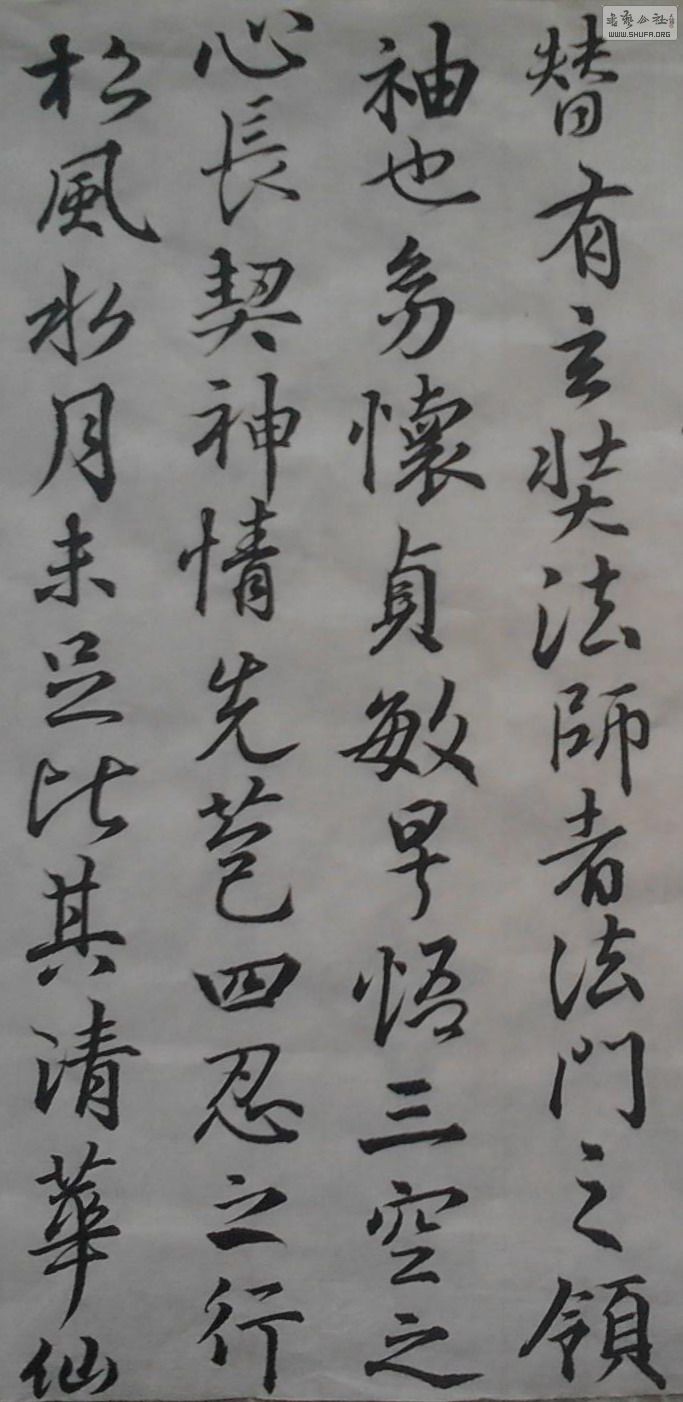 替有玄奘法師者法門之領
袖也幼懷貞敏早悟三空之
心長契神情先苞四忍之行
松風水月未足比其清華仙
書藝公社
WWW.SHUFA.ORG